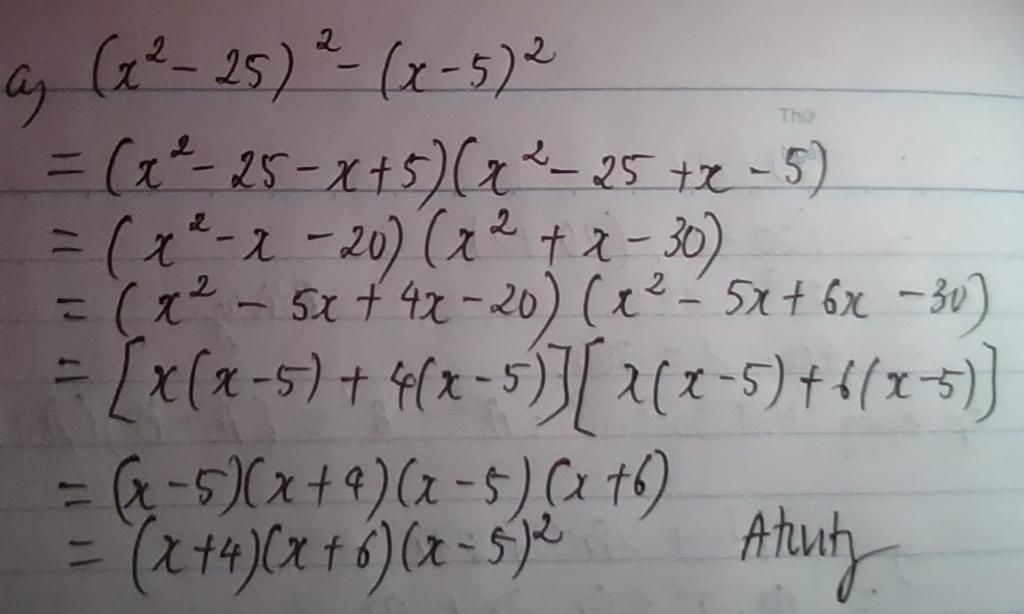 a) (x² - 25)² - (x - 5)²
Thứ
= (x² - 25 - x + 5)(x² - 25 + x - 5)
= (x² - x - 20)(x² + x - 30)
= (x² - 5x + 4x - 20)(x² - 5x + 6x - 30)
= [x(x - 5) + 4(x - 5)][x(x - 5) + 6(x - 5)]
= (x - 5)(x + 4)(x - 5)(x + 6)
= (x + 4)(x + 6)(x - 5)²